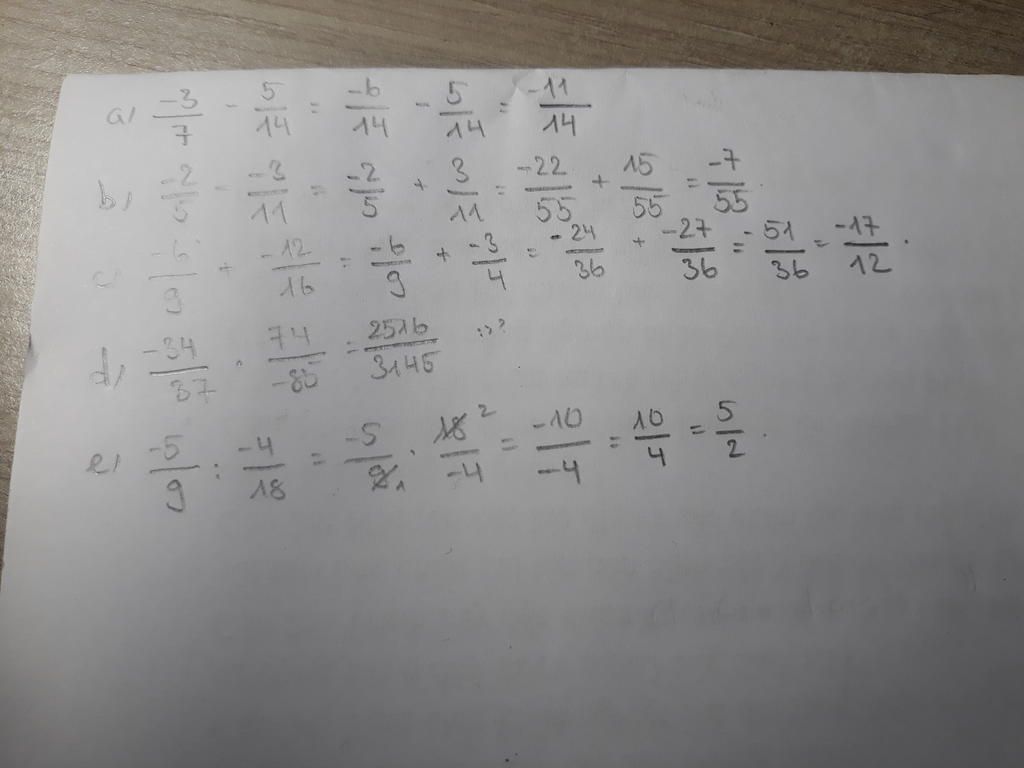 a) -3/7 - 5/14 = -6/14 - 5/14 = -11/14
b) -2/5 - -3/11 = -2/5 + 3/11 = -22/55 + 15/55 = -7/55.
c) -6/9 + -12/16 = -6/9 + -3/4 = -24/36 + -27/36 = -51/36 = -17/12.
d) -34/37 · 74/-85 = 2516/3145 ???
e) -5/9 : -4/18 = -5/9 1 · 18 2/-4 = -10/-4 = 10/4 = 5/2.